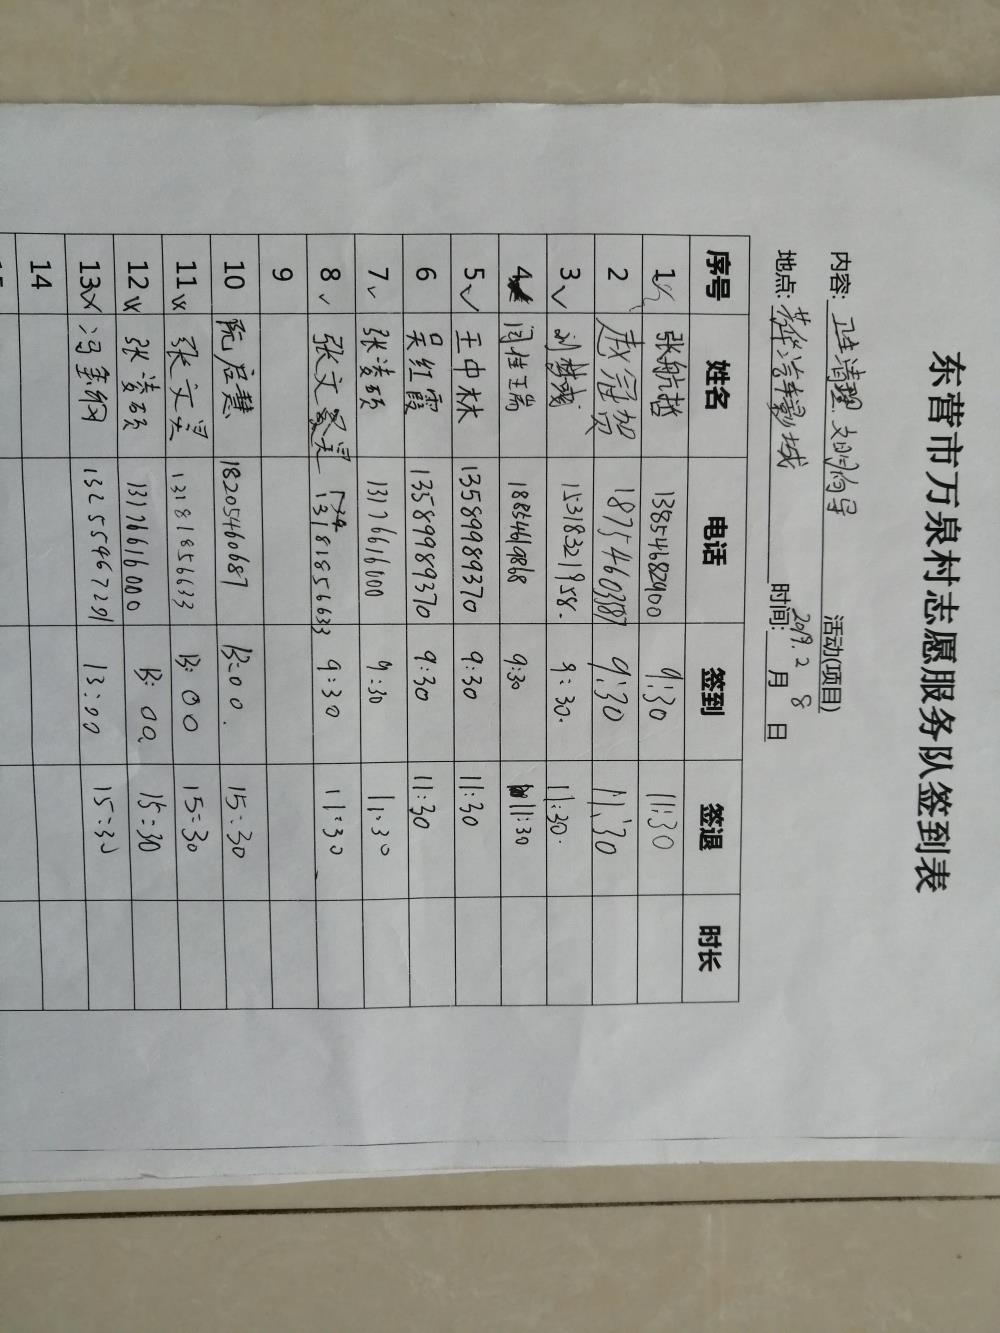 东营市万泉村志愿服务队签到表
内容: 卫生清理 文明向导 活动(项目)
地点: 影城 时间: 2019. 2 月 8 日
序号 姓名 电话 签到 签退 时长
1 张航 13854682900 9:30 11:30
2 赵冠 18754603187 9:30 11:30
3 刘 15318321958. 9:30. 11:30.
4 闫佳 18854619868 9:30 11:30
5 王中林 13589989370 9:30 11:30
6 吴红霞 13589989370 9:30 11:30
7 张凌硕 13176616000 9:30 11:30
8 张文 13181856633 9:30 11:30
9
10 阮启慧 18205460687 13:00. 15:30
11 张文昊 13181856633 13:00 15:30
12 张凌硕 13176616000 13:00 15:30
13 冯 13255467291 13:00 15:30
14